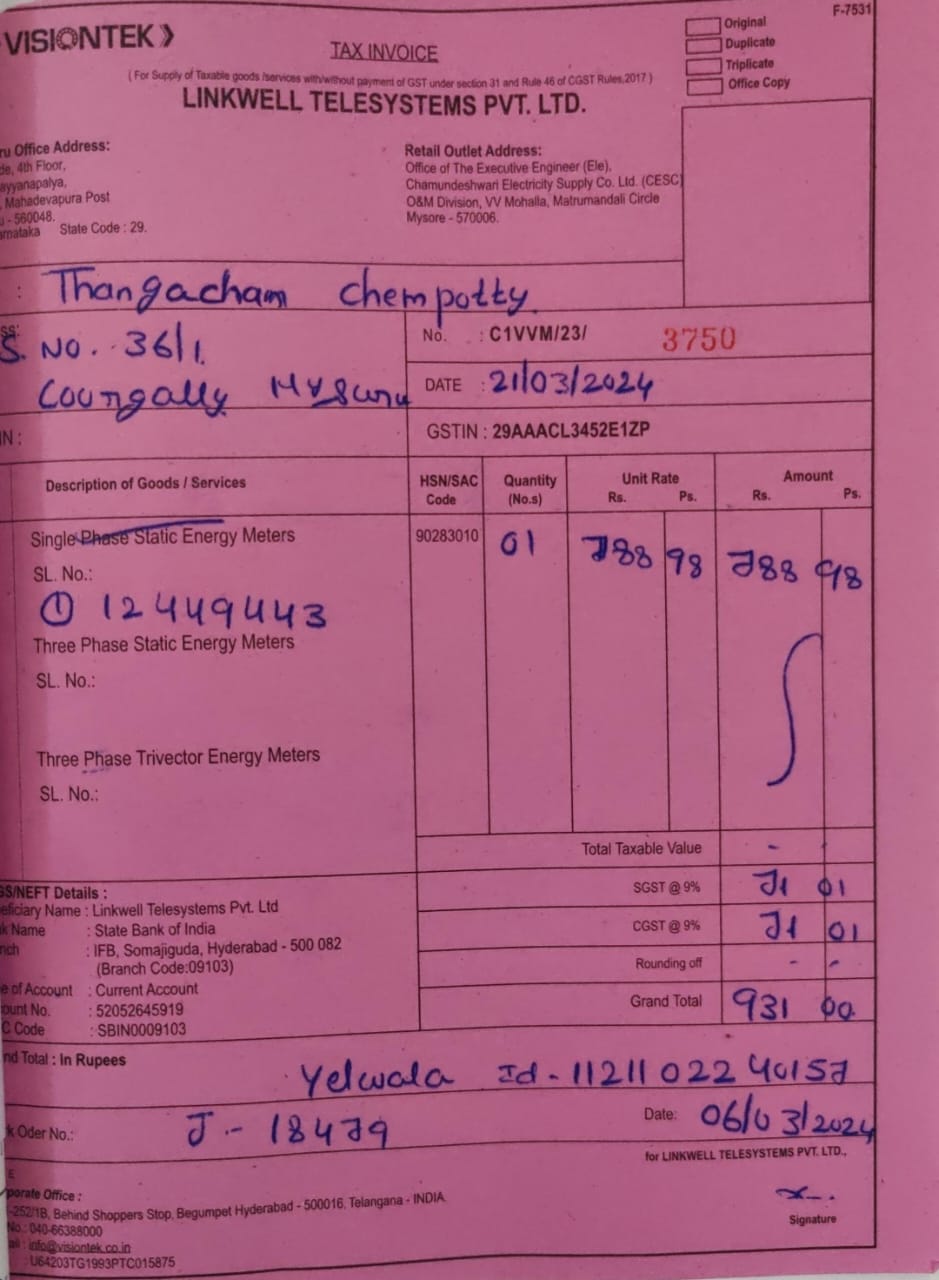 VISIONTEK
F-7531
TAX INVOICE
Original
Duplicate
Triplicate
Office Copy
( For Supply of Taxable goods /services with/without payment of GST under section 31 and Rule 46 of CGST Rules,2017 )
LINKWELL TELESYSTEMS PVT. LTD.
ru Office Address:
de, 4th Floor,
ayyanapalya,
, Mahadevapura Post
u - 560048.
arnataka State Code : 29.
Retail Outlet Address:
Office of The Executive Engineer (Ele),
Chamundeshwari Electricity Supply Co. Ltd. (CESC)
O&M Division, VV Mohalla, Matrumandali Circle
Mysore - 570006.
: Thangacham Chempotty
ss:
S. No. 36/1.
Coorgally Mysuru
No. : C1VVM/23/ 3750
DATE : 21/03/2024
IN :
GSTIN : 29AAACL3452E1ZP
Description of Goods / Services HSN/SAC Code Quantity (No.s) Unit Rate Rs. Ps. Amount Rs. Ps.
Single Phase Static Energy Meters 90283010 01 788 98 788 98
SL. No.:
① 12449443
Three Phase Static Energy Meters
SL. No.:
Three Phase Trivector Energy Meters
SL. No.:
Total Taxable Value -
SGST @ 9% 71 01
CGST @ 9% 71 01
Rounding off - -
Grand Total 931 00
GS/NEFT Details :
eficiary Name : Linkwell Telesystems Pvt. Ltd
k Name : State Bank of India
nch : IFB, Somajiguda, Hyderabad - 500 082
(Branch Code:09103)
e of Account : Current Account
ount No. : 52052645919
C Code : SBIN0009103
nd Total : In Rupees
Yelwala Id - 11211022 40157
k Oder No.: J - 18479
Date: 06/03/2024
for LINKWELL TELESYSTEMS PVT. LTD.,
E
porate Office :
-252/1B, Behind Shoppers Stop, Begumpet Hyderabad - 500016, Telangana - INDIA
No.: 040-66388000
ail : info@visiontek.co.in
: U64203TG1993PTC015875
Signature